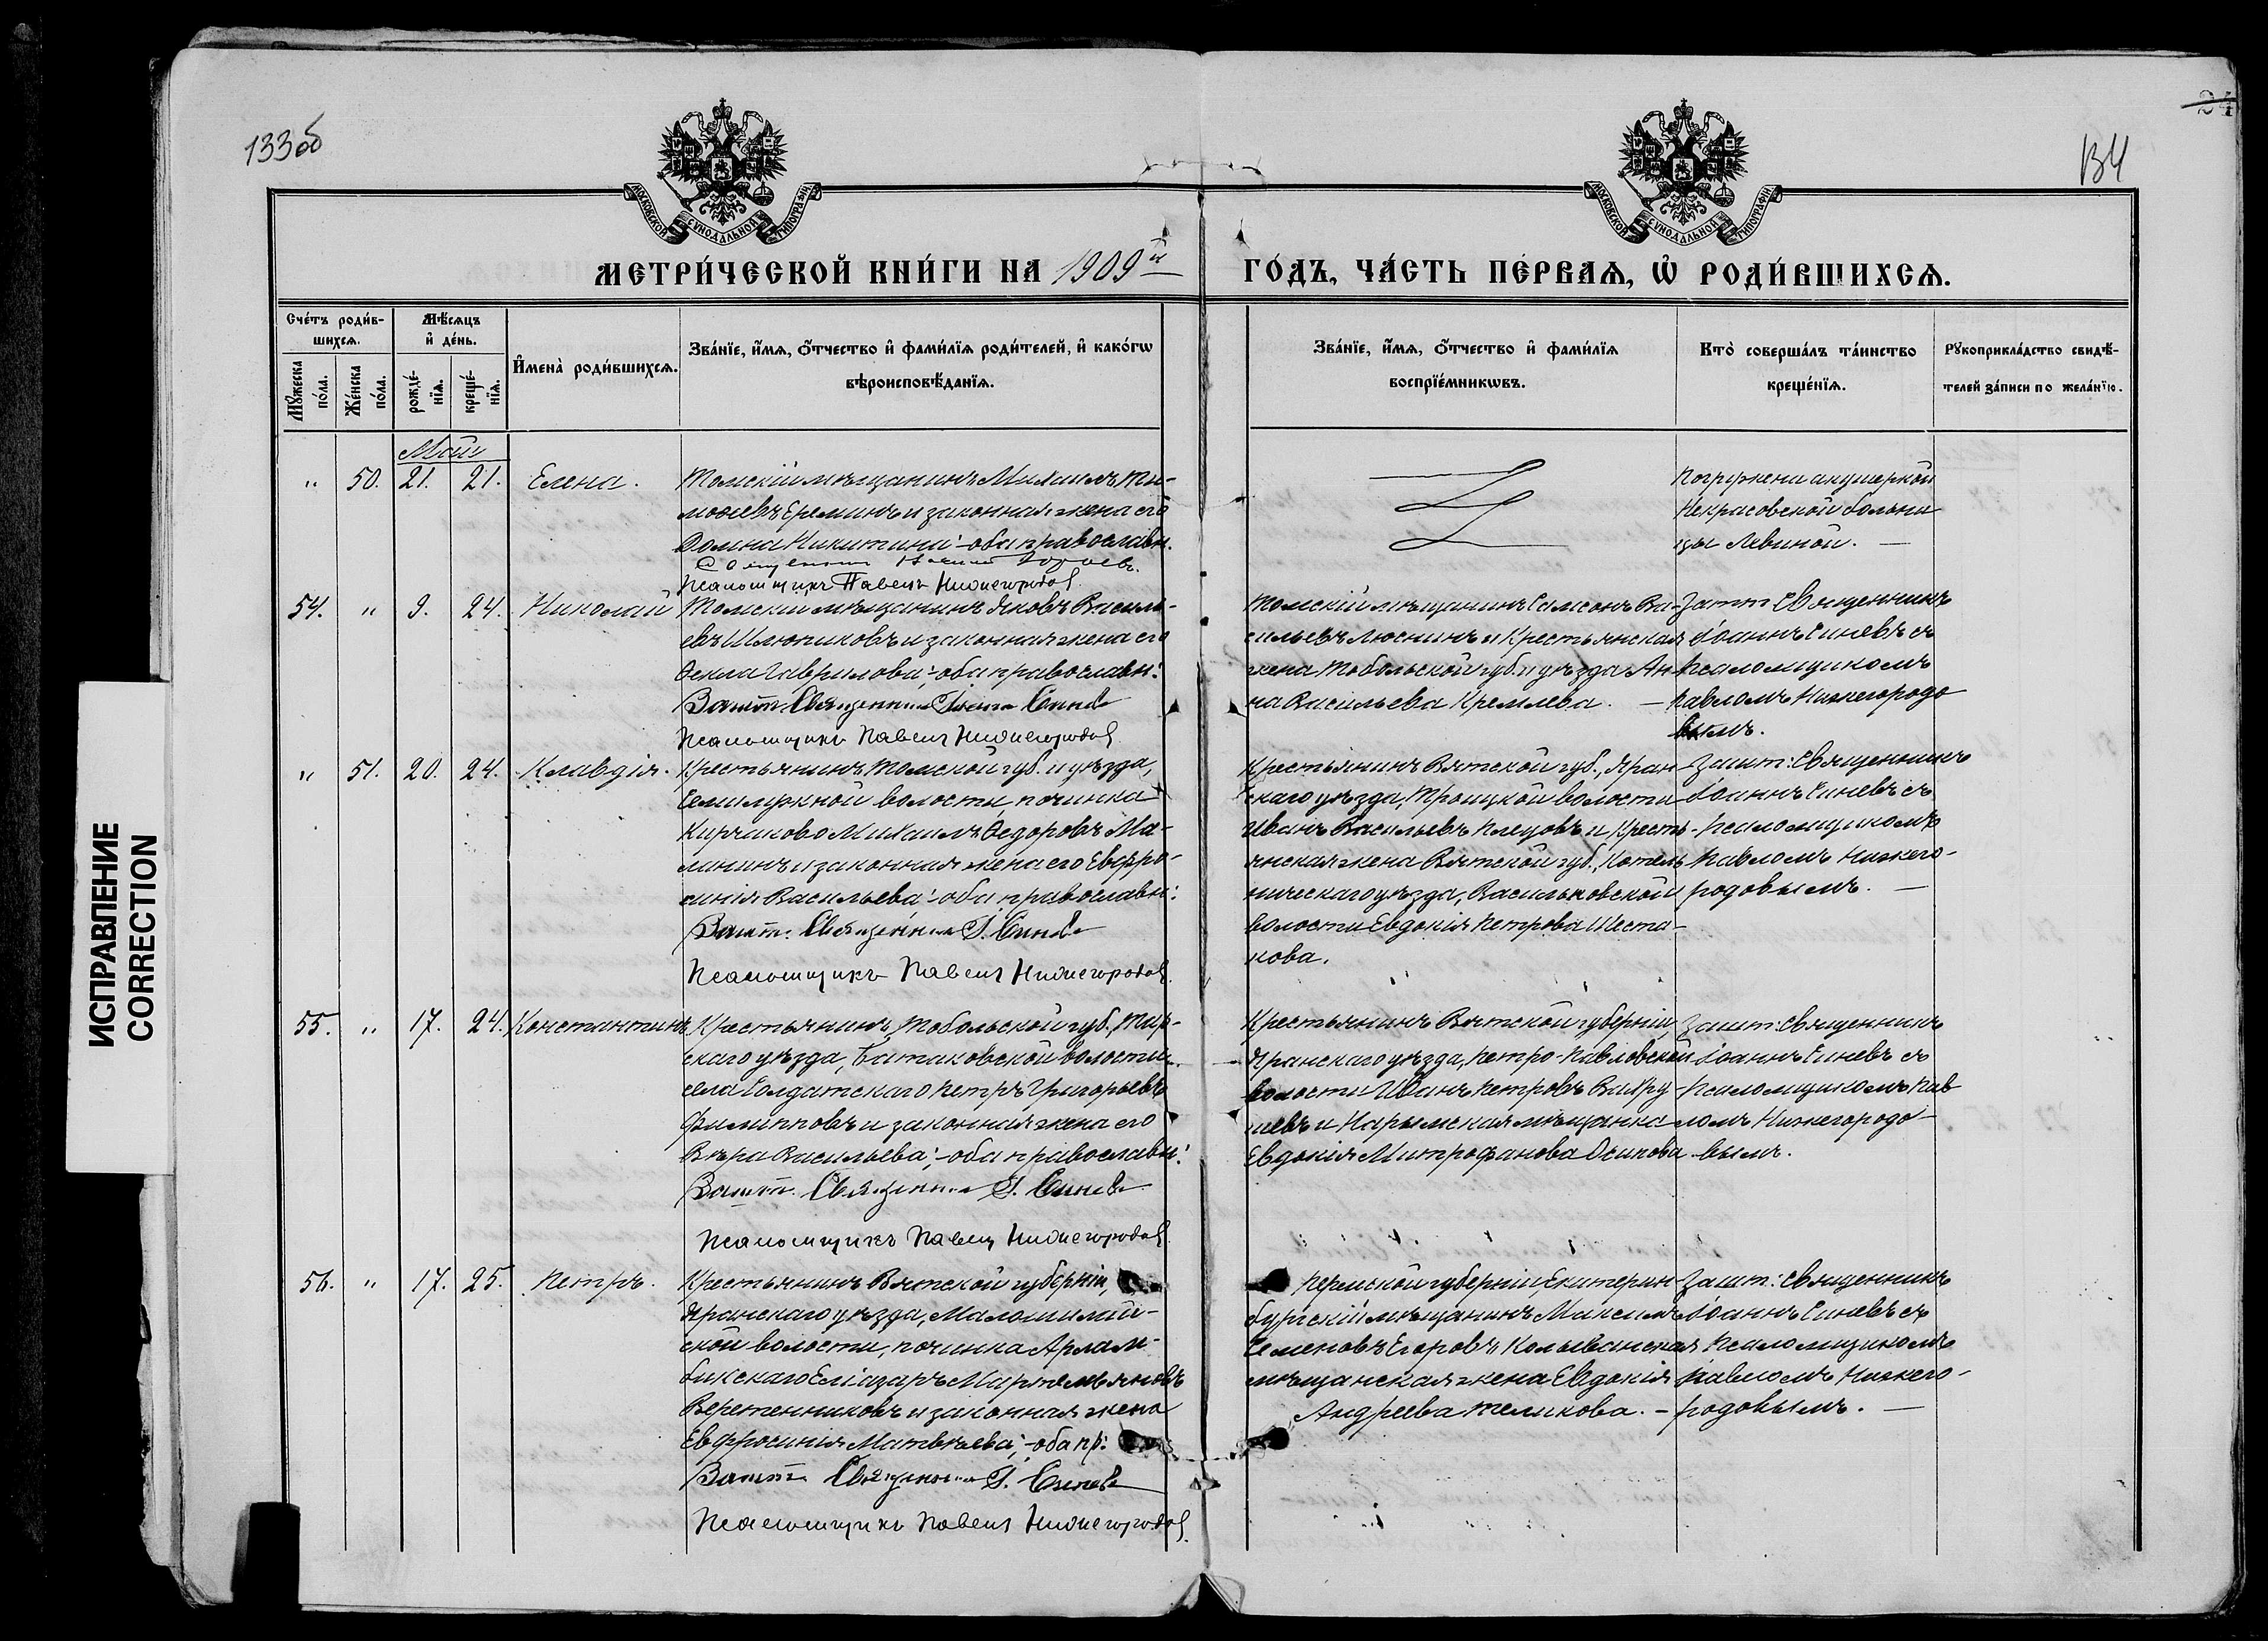 133об
134
24
МОСКОВСКОЙ СѴНОДАЛЬНОЙ ТИПОГРАФИИ
МОСКОВСКОЙ СѴНОДАЛЬНОЙ ТИПОГРАФИИ
МЕТРИ́ЧЕСКОЙ КНИ́ГИ НА 1909й
ГО́ДЪ, ЧА́СТЬ ПЕ́РВАѦ, Ѽ РОДИ́ВШИХСѦ.
Сче́тъ роди́в-
шихсѧ.
Мꙋ́жеска по́ла.
Же́нска по́ла.
Мѣ́сѧцъ
и҆ де́нь.
рожде́-
нїѧ.
креще́-
нїѧ.
И҆мена̀ роди́вшихсѧ.
Зва́нїе, и҆́мѧ, ѻ҆́тчество и҆ фами́лїѧ роди́телей, и҆ како́гѡ
вѣроисповѣ́данїѧ.
Зва́нїе, и҆́мѧ, ѻ҆́тчество и҆ фами́лїѧ
воспрїе́мникѡвъ.
Кто̀ соверша́лъ та́инство
креще́нїѧ.
Рꙋкоприкла́дство свидѣ́-
телей за́писи по жела́нїю.
Май
„ 50. 21. 21. Елена.
Томскій мѣщанинъ Михаилъ Ти-
моѳеевъ Ереминъ и законная жена его
Домна Никитина; оба православн.
Псаломщикъ Павелъ Нижегородов
Погружена акушеркой
Некрасовской больни
цы Левиной. —
54. „ 9. 24. Николай
Томскій мѣщанинъ Яковъ Василь-
евъ Шлюпиковъ и законная жена его
Ѳекла Гаврилова; оба православн:
Зашт. Священник Іоанн Синев
Псаломщикъ Павелъ Нижегородов
Томскій мѣщанинъ Самсонъ Ва-
сильевъ Люснинъ и Крестьянская
жена Тобольской губ. и уѣзда Ан-
на Васильева Кремлева. —
Зашт: Священникъ
Іоаннъ Синевъ съ
Псаломщикомъ
Павломъ Нижегородо
вымъ.
„ 51. 20. 24. Клавдія.
Крестьянинъ Томской губ. и уѣзда,
Семилужной волости, починка
Михаилъ Ѳедоровъ Ма-
лининъ и законная жена его Евфро-
синія Васильева; оба православн:
Зашт. Священник І. Синев
Псаломщикъ Павелъ Нижегородов
Крестьянинъ Вятской губ., Яран-
скаго уѣзда, Троицкой волости
Иванъ Васильевъ и Кресть-
янская жена Вятской губ., Котель
ническаго уѣзда, Васильковской
волости Евдокія Петрова Шеста-
кова.
Зашт: Священникъ
Іоаннъ Синевъ съ
Псаломщикомъ
Павломъ Нижего-
родовымъ. —
55. „ 17. 24. Константинъ
Крестьянинъ Тобольской губ., Тар-
скаго уѣзда, Бутаковской волости
села Солдатскаго Петръ Григорьевъ
Филипповъ и законная жена его
Вѣра Васильева; оба православн:
Зашт. Священник І. Синев
Псаломщикъ Павелъ Нижегородов
Крестьянинъ Вятской губерніи
Яранскаго уѣзда, Петро-Павловской
волости Иванъ Петровъ Вахру
шевъ и Нарымская мѣщанка
Евдокія Митрофанова Осипова
Зашт: Священникъ
Іоаннъ Синевъ съ
Псаломщикомъ Пав
ломъ Нижегородо-
вымъ.
56. „ 17. 25. Петръ.
Крестьянинъ Вятской губерніи,
Яранскаго уѣзда,
ской волости, починка Арлам-
Еліазаръ Мартемьяновъ
Веретенниковъ и законная жена
Евфросинія Матвѣева; оба пр:
Зашт. Священник І. Синев
Псаломщикъ Павелъ Нижегородов
Пермской губерніи, Екатерин
бургскій мѣщанинъ Максимъ
Семеновъ Егоровъ, Колыванская
мѣщанская жена Евдокія
Андреева Теликова. —
Зашт: Священникъ
Іоаннъ Синевъ съ
Псаломщикомъ
Павломъ Нижего-
родовымъ. —
ИСПРАВЛЕНИЕ
CORRECTION